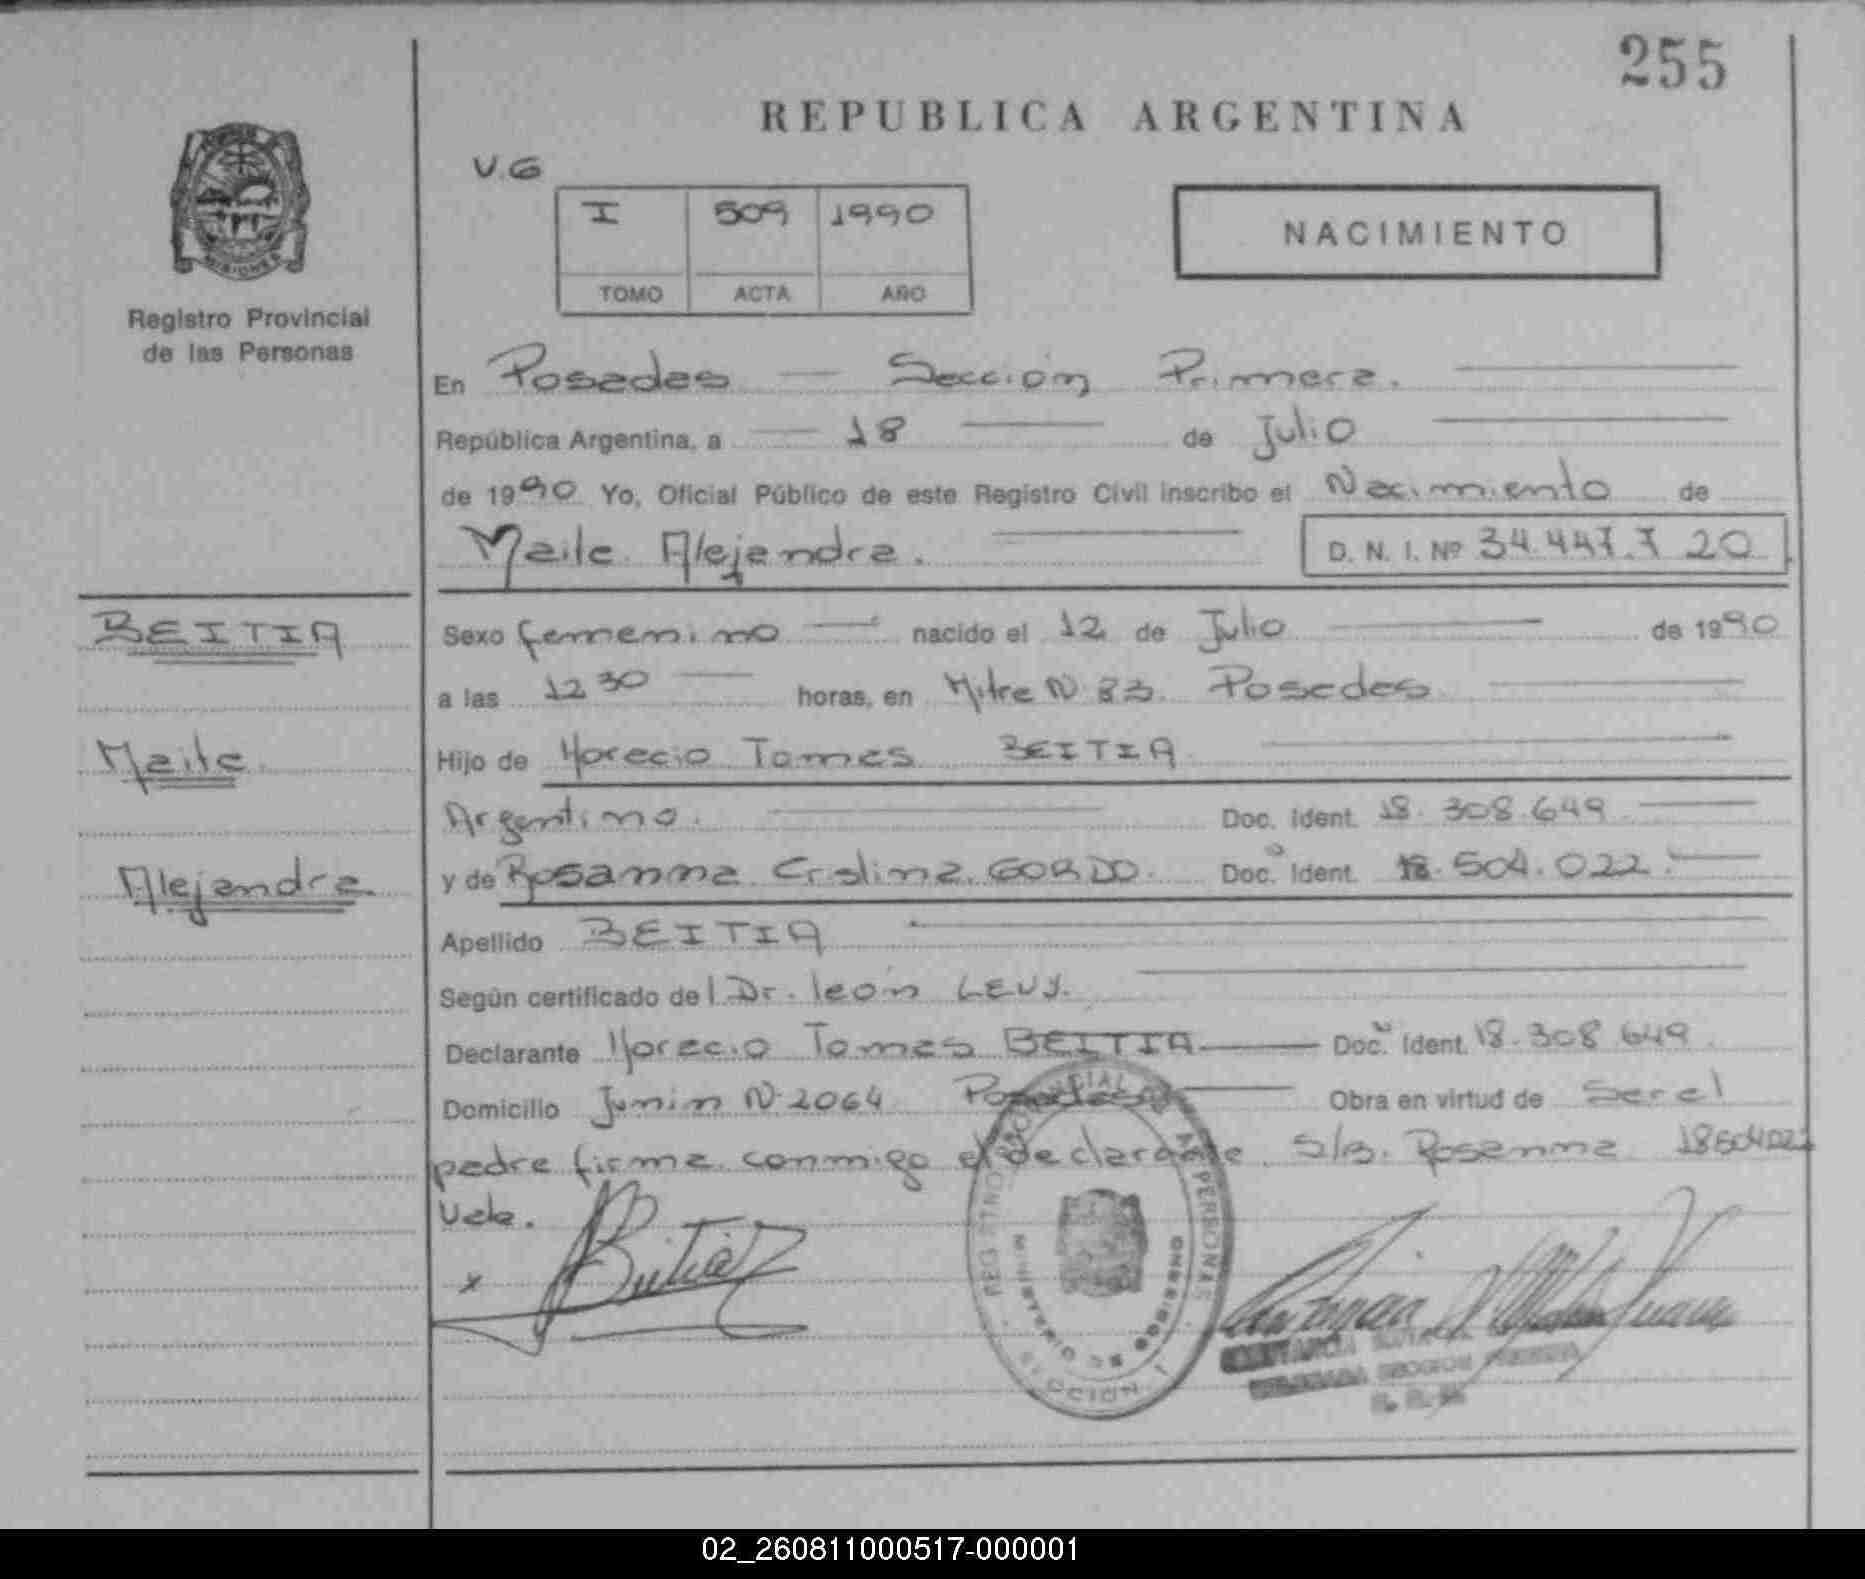 255
REPUBLICA ARGENTINA
V.G
I 509 1990
TOMO ACTA AÑO
NACIMIENTO
MISIONES
Registro Provincial
de las Personas
En Posadas — Sección Primera.
República Argentina, a — 18 — de Julio
de 1990 Yo, Oficial Público de este Registro Civil inscribo el Nacimiento de
Maite Alejandra.
D. N. I. Nº 34.447.720
BEITIA
Maite
Alejandra
Sexo femenino — nacido el 12 de Julio — de 1990
a las 12 30 — horas, en Mitre N 83. Posadas
Hijo de Horacio Tomas BEITIA
Argentino. Doc. Ident. 18.308.649
y de Rosanna Cristina GORDO. Doc. Ident. 18.504.022.
Apellido BEITIA
Según certificado del Dr. león LEVY.
Declarante Horacio Tomas BEITIA — Doc. Ident. 18.308 649.
Domicilio Junin N 2064 Posadas — Obra en virtud de Ser el
padre firma conmigo el declarante. S/B. Rosanna 18504022
Vale.
x Beitia
REGISTRO PROVINCIAL DE LAS PERSONAS
MINISTERIO DE GOBIERNO
SECCION 1
02_260811000517-000001